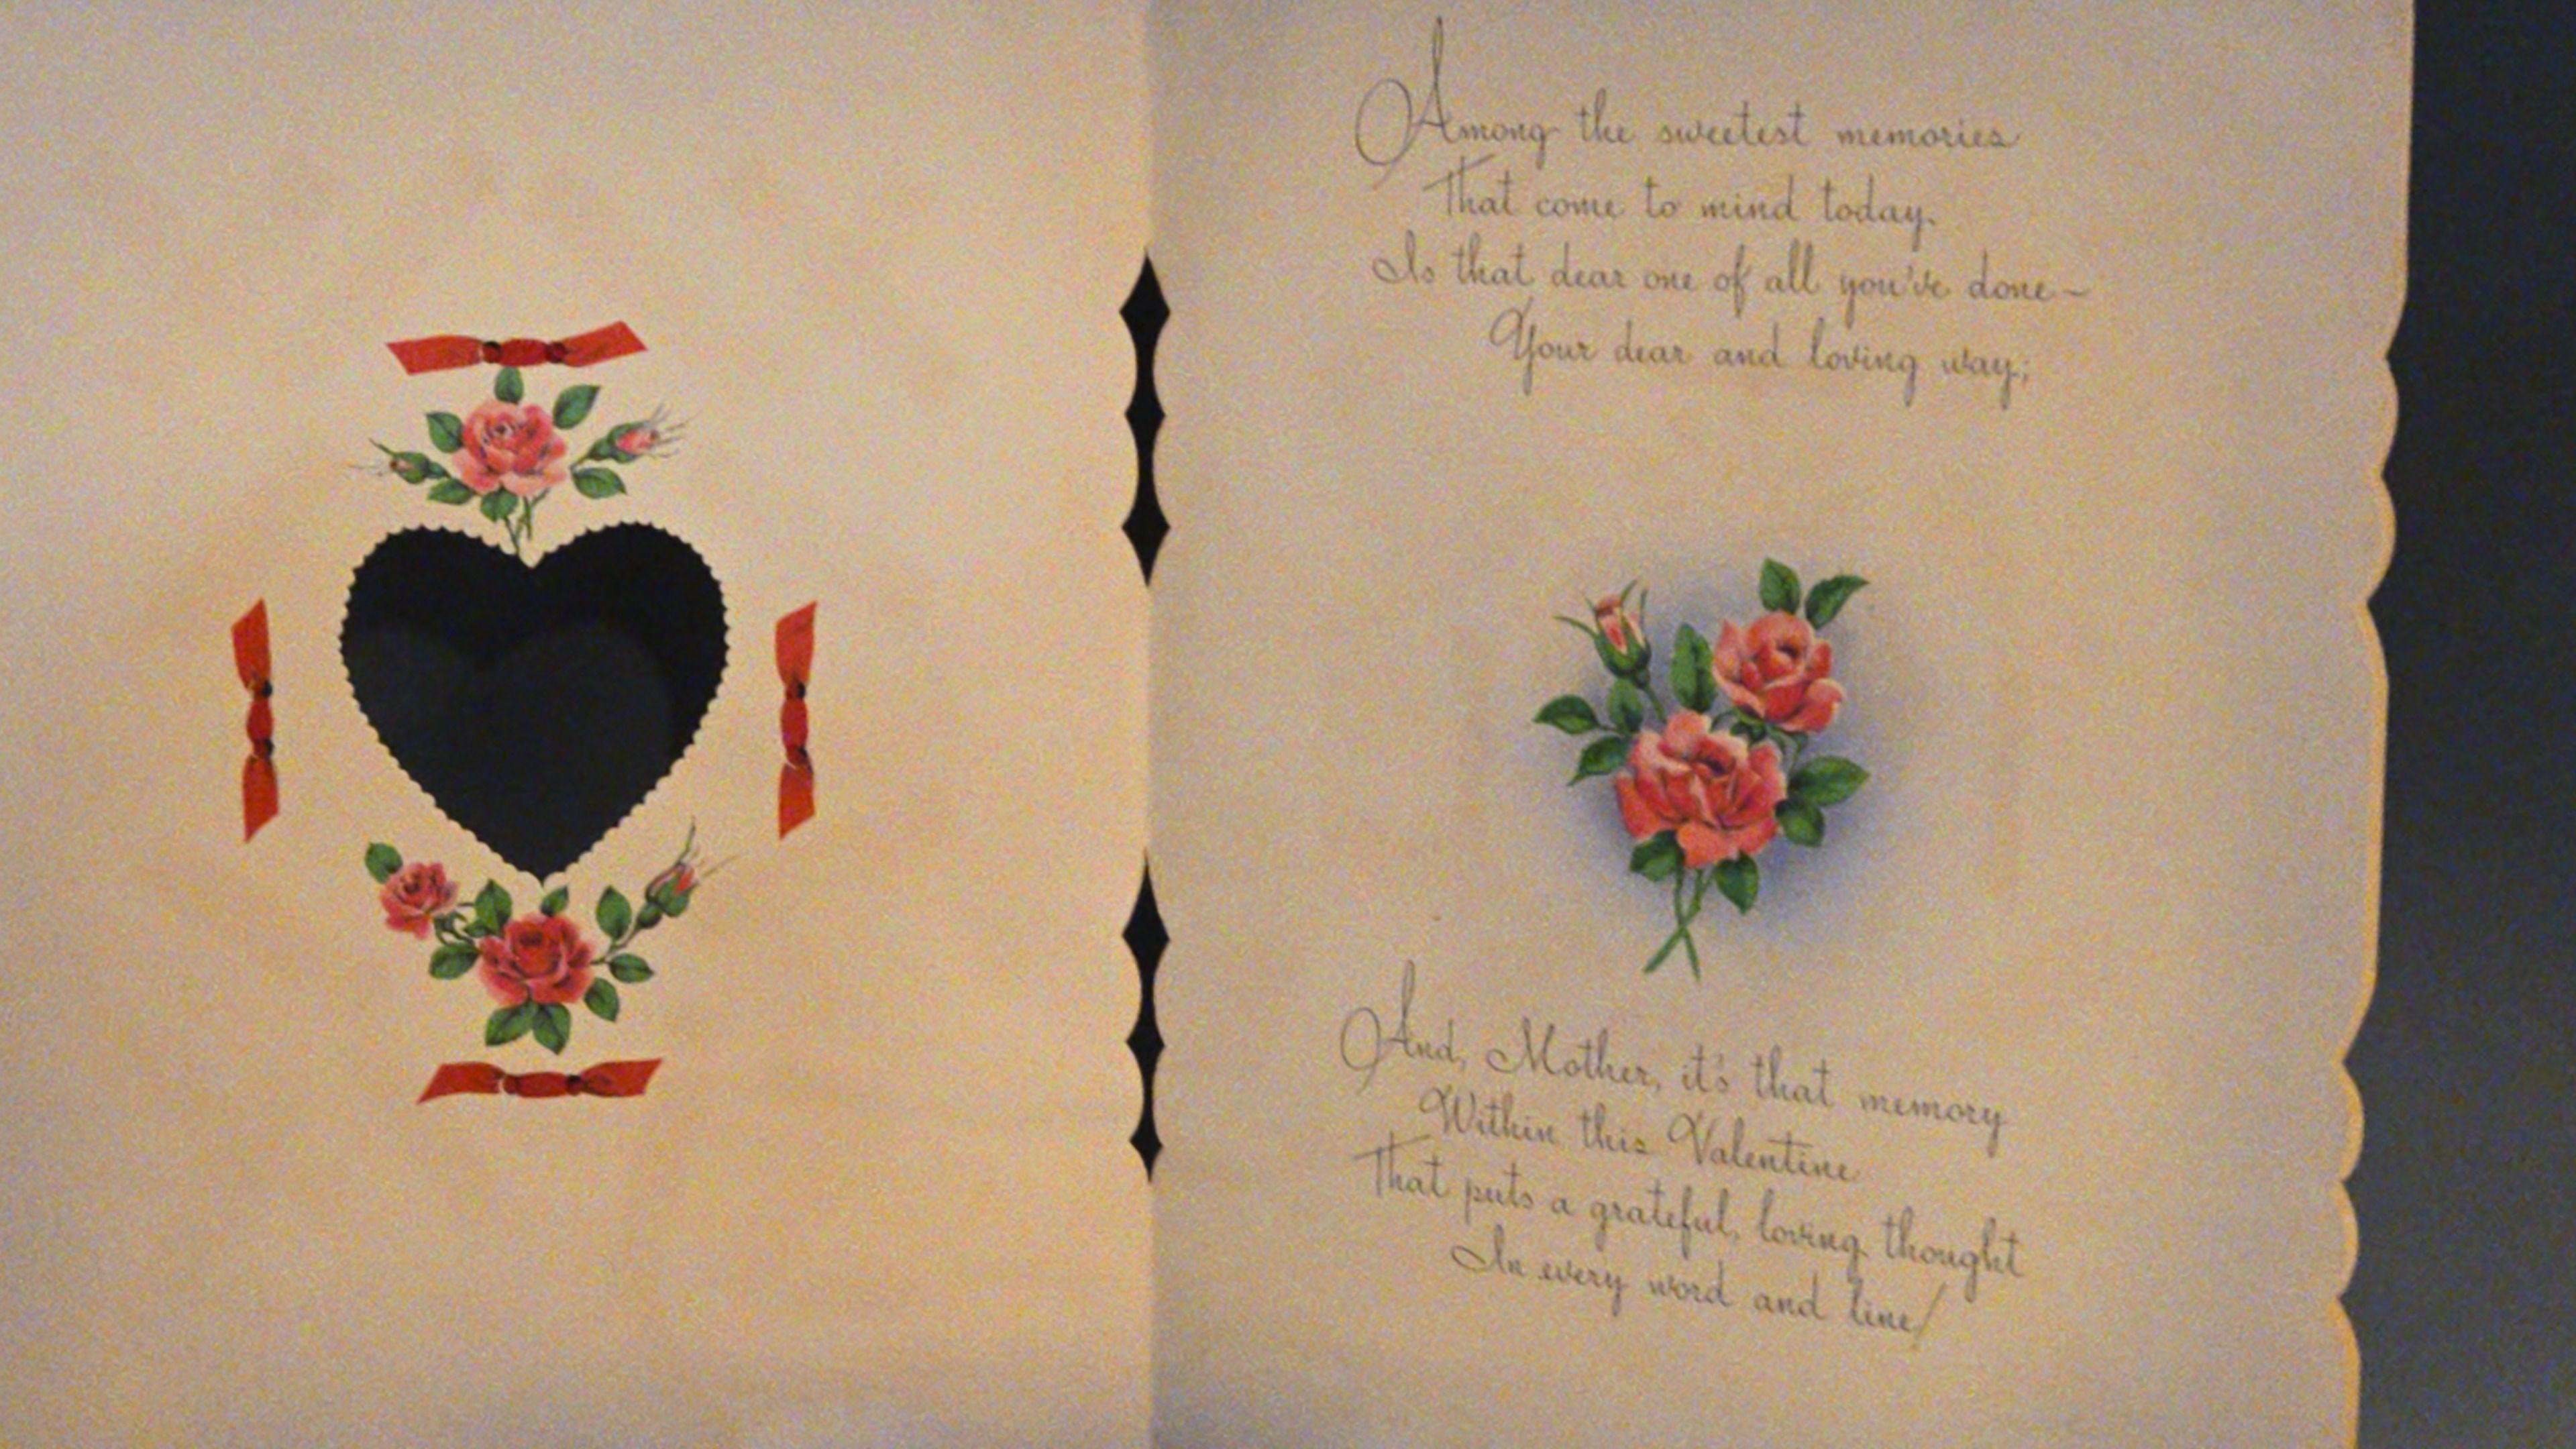 Among the sweetest memories
That come to mind today,
Is that dear one of all you've done—
Your dear and loving way;
And, Mother, it's that memory
Within this Valentine
That puts a grateful, loving thought
In every word and line!